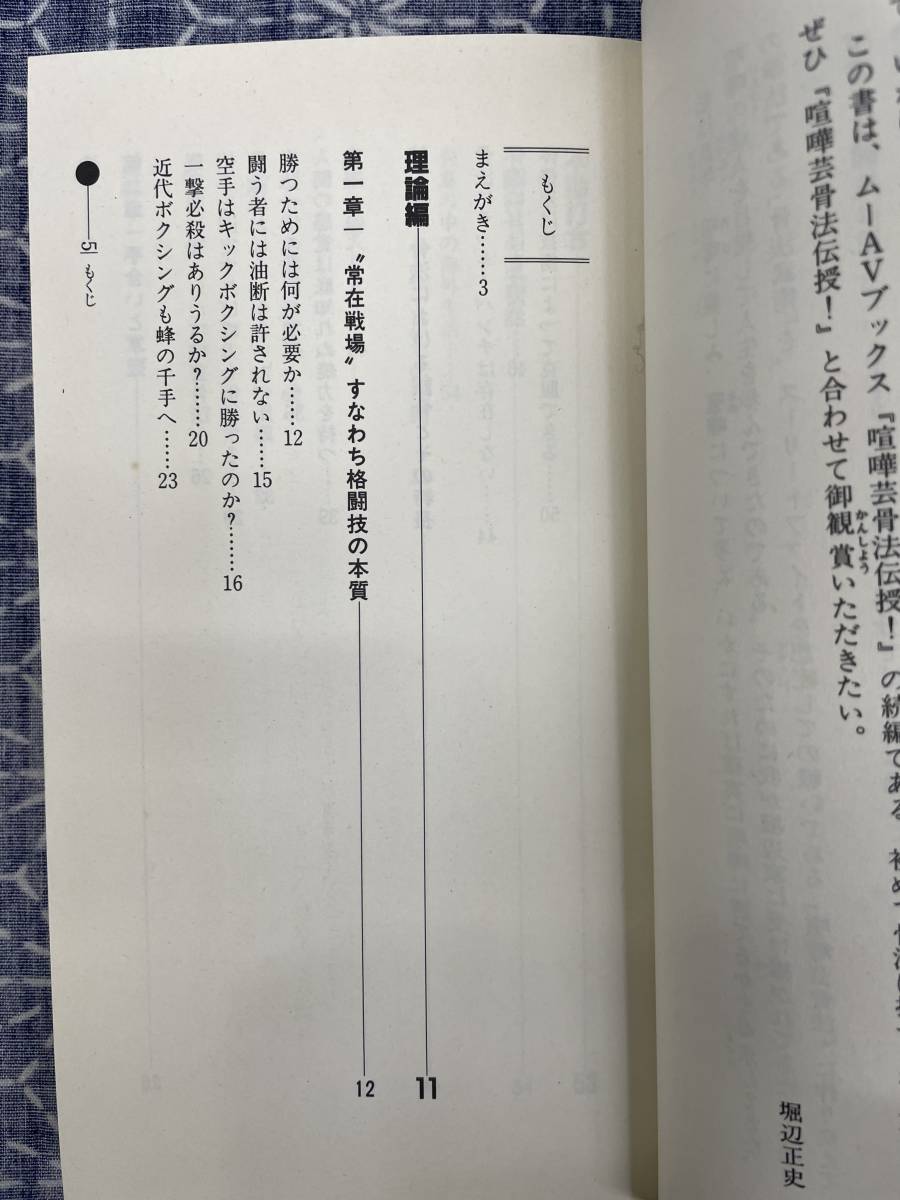 この書は、ムーAVブックス『喧嘩芸骨法伝授!』の続編である
ぜひ『喧嘩芸骨法伝授!』と合わせて御観賞いただきたい。
かんしょう
堀辺正史
もくじ
まえがき………3
理論編 11
第一章 〝常在戦場〟すなわち格闘技の本質 12
勝つためには何が必要か……12
闘う者には油断は許されない……15
空手はキックボクシングに勝ったのか?………16
一撃必殺はありうるか?………20
近代ボクシングも蜂の千手へ……23
5 もくじ